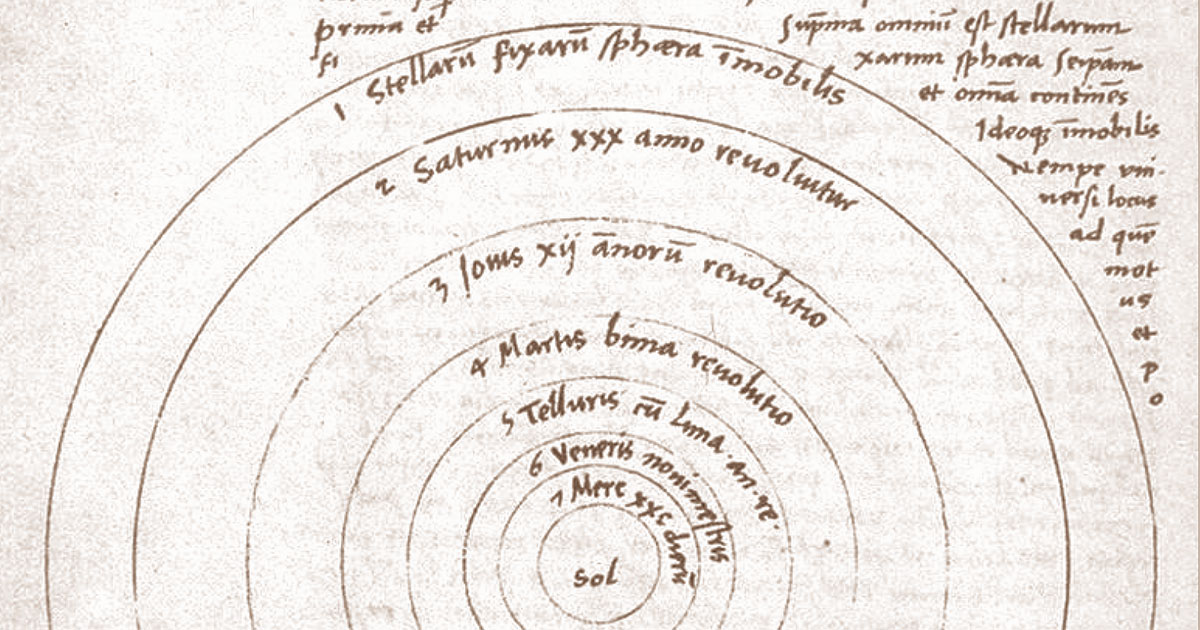 prima et
fi
supma omniū est stellarum
xarum sphæra seipam
et omīa continēs
Ideoqȝ īmobilis
Nempe vni-
uersi locus
ad quē
mot
us
et
p
o
1 Stellarū fixarū sphæra īmobilis
2 Saturnus xxx anno reuoluitur
3 Iouis xij ānorū reuolutio
4 Martis bima reuolutio
5 Telluris cū Luna . an . re .
6 Veneris nonimestris
7 Merc xxc dierū
Sol